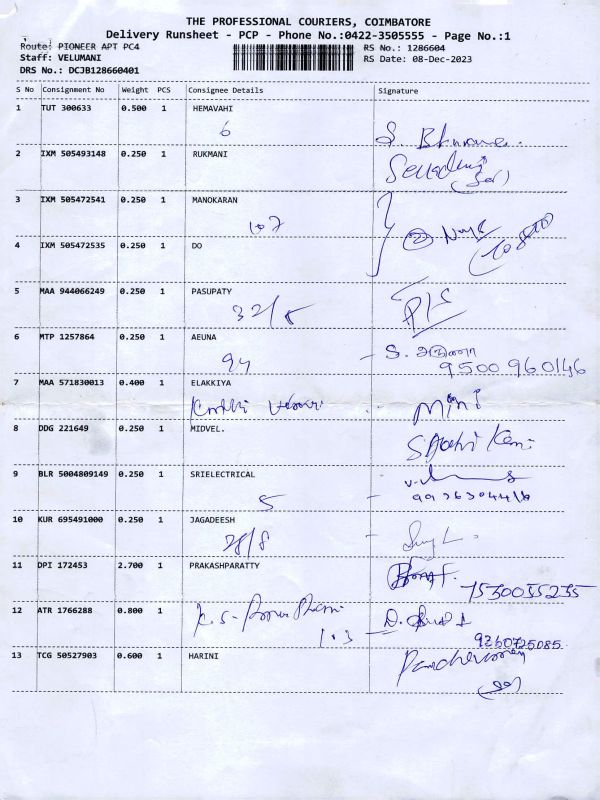 THE PROFESSIONAL COURIERS, COIMBATORE
Delivery Runsheet - PCP - Phone No.:0422-3505555 - Page No.:1
Route: PIONEER APT PC4
RS No.: 1286604
Staff: VELUMANI
RS Date: 08-Dec-2023
DRS No.: DCJB128660401
S No Consignment No Weight PCS Consignee Details Signature
1 TUT 300633 0.500 1 HEMAVAHI
6
2 IXM 505493148 0.250 1 RUKMANI
3 IXM 505472541 0.250 1 MANOKARAN
107
4 IXM 505472535 0.250 1 DO
5 MAA 944066249 0.250 1 PASUPATY
32/8
6 MTP 1257864 0.250 1 AEUNA
94 - S. அருணா
9500960146
7 MAA 571830013 0.400 1 ELAKKIYA
Mini
8 DDG 221649 0.250 1 MIDVEL.
9 BLR 5004809149 0.250 1 SRIELECTRICAL
5
10 KUR 695491000 0.250 1 JAGADEESH
28/8
11 DPI 172453 2.700 1 PRAKASHPARATTY
7530035235
12 ATR 1766288 0.800 1
103
9260725085
13 TCG 50527903 0.600 1 HARINI